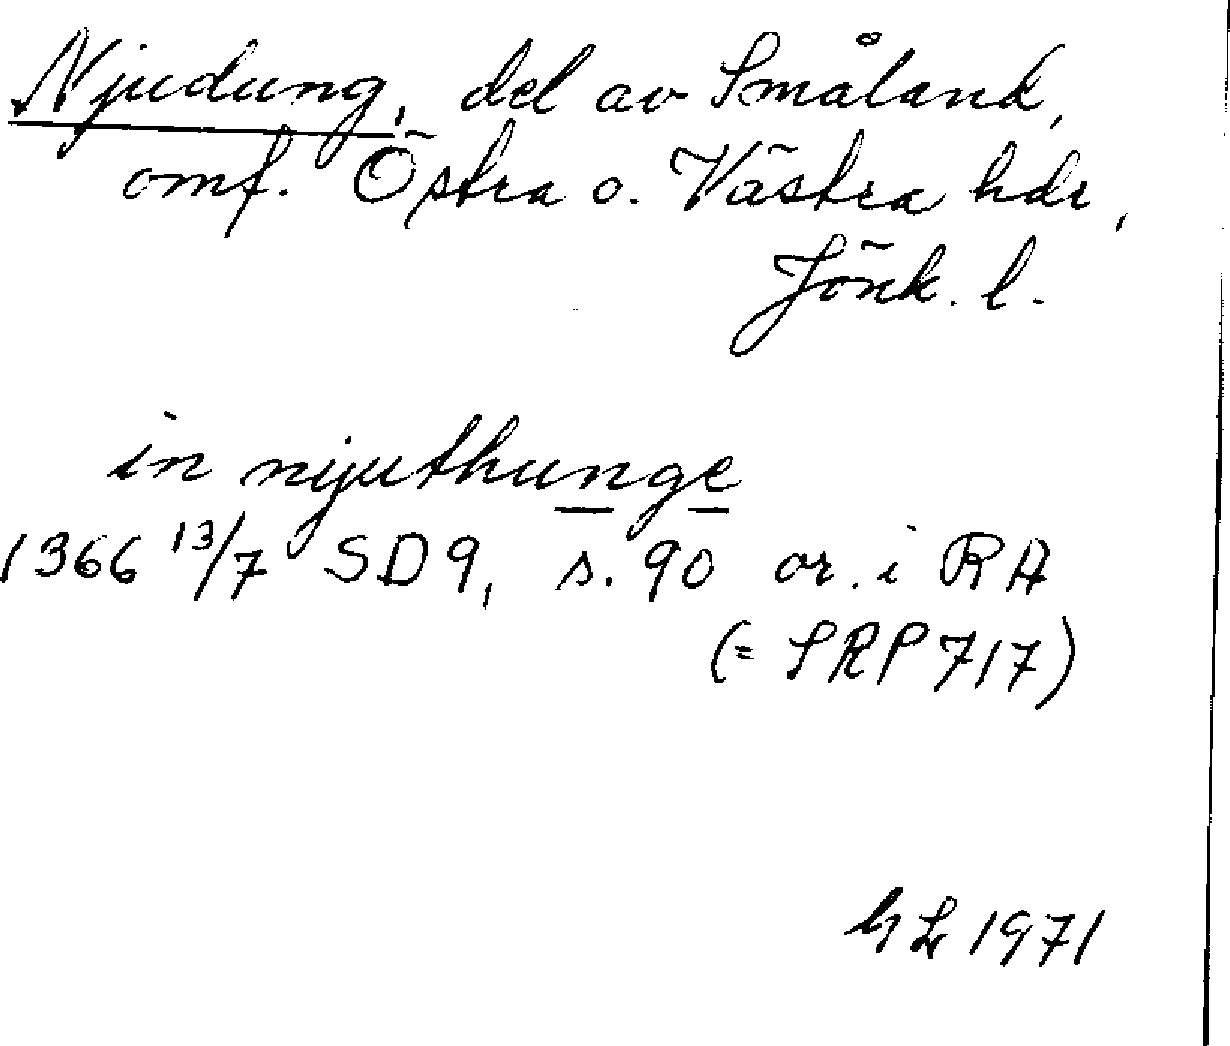 Njudung, del av Småland,
omf. Östra o. Västra hdr,
Jönk. l.
in nyuthunge
1366 13/7 SD 9, s. 90 or. i RA
(= SRP 717)
1971